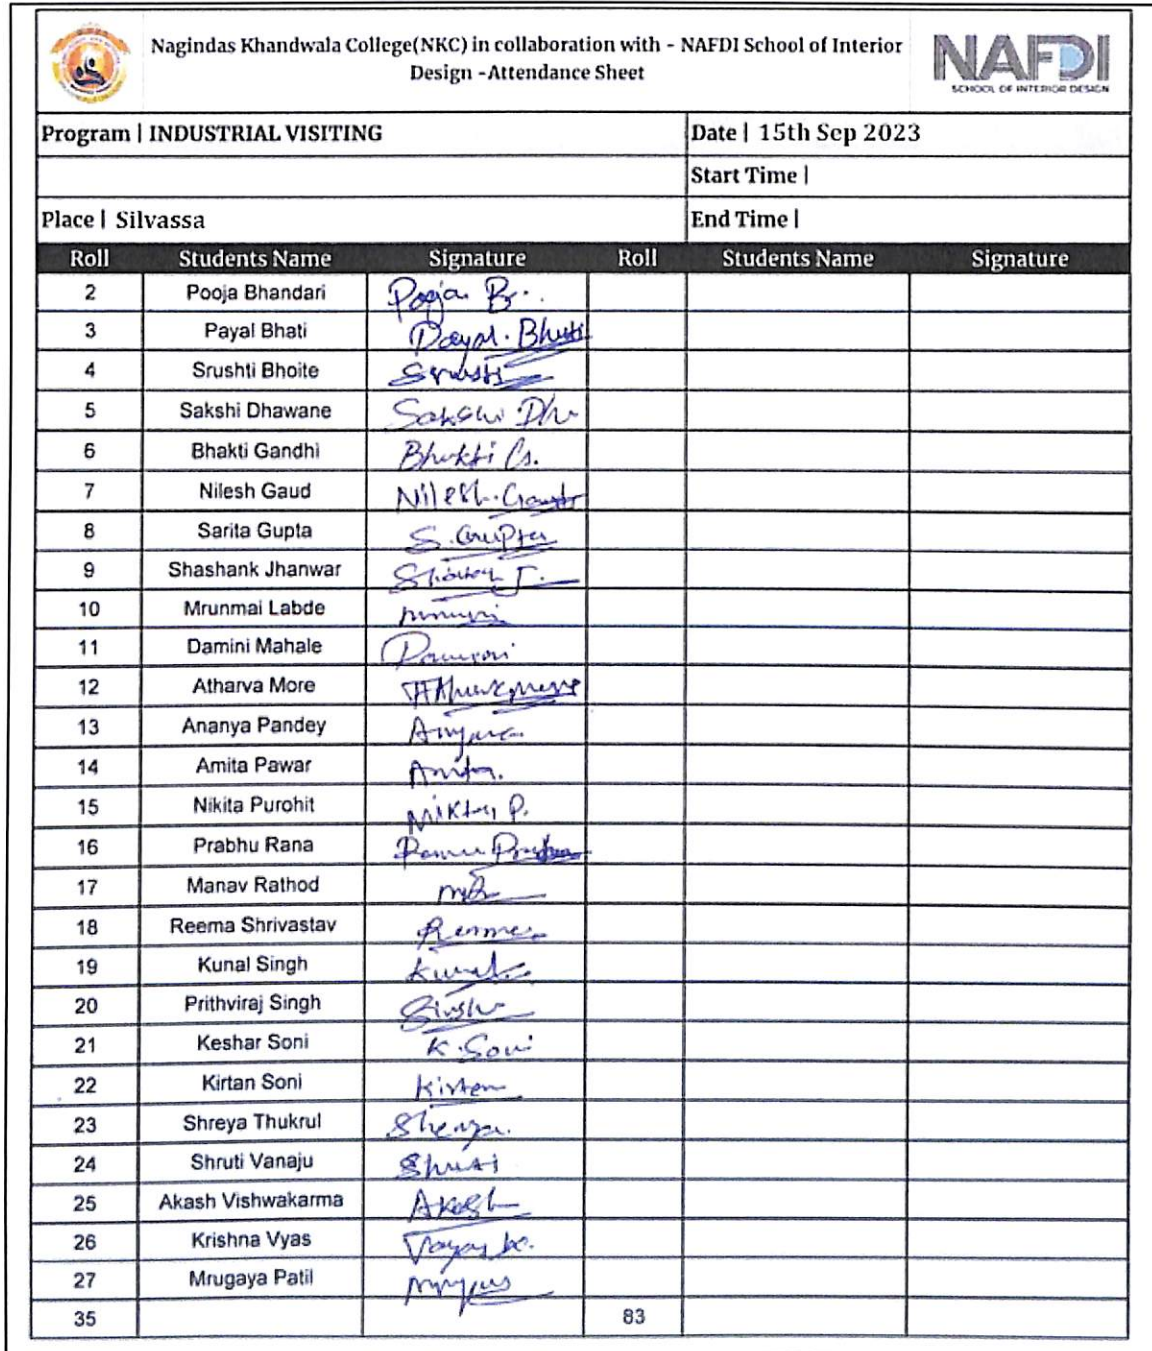 Nagindas Khandwala College(NKC) in collaboration with - NAFDI School of Interior
Design -Attendance Sheet
NAFDI
SCHOOL OF INTERIOR DESIGN
Program | INDUSTRIAL VISITING Date | 15th Sep 2023
Start Time |
Place | Silvassa End Time |
Roll Students Name Signature Roll Students Name Signature
2 Pooja Bhandari Pooja B..
3 Payal Bhati Payal. Bhati
4 Srushti Bhoite Srushti
5 Sakshi Dhawane Sakshi Dh
6 Bhakti Gandhi Bhakti G.
7 Nilesh Gaud Nilesh. Gaud
8 Sarita Gupta S. Gupta
9 Shashank Jhanwar J.
10 Mrunmai Labde
11 Damini Mahale Damini
12 Atharva More
13 Ananya Pandey
14 Amita Pawar Amita.
15 Nikita Purohit Nikita P.
16 Prabhu Rana Rana Prabhu
17 Manav Rathod
18 Reema Shrivastav Reema
19 Kunal Singh Kunal
20 Prithviraj Singh Singh
21 Keshar Soni K. Soni
22 Kirtan Soni Kirtan
23 Shreya Thukrul Shreya.
24 Shruti Vanaju Shruti
25 Akash Vishwakarma Akash
26 Krishna Vyas
27 Mrugaya Patil
35 83